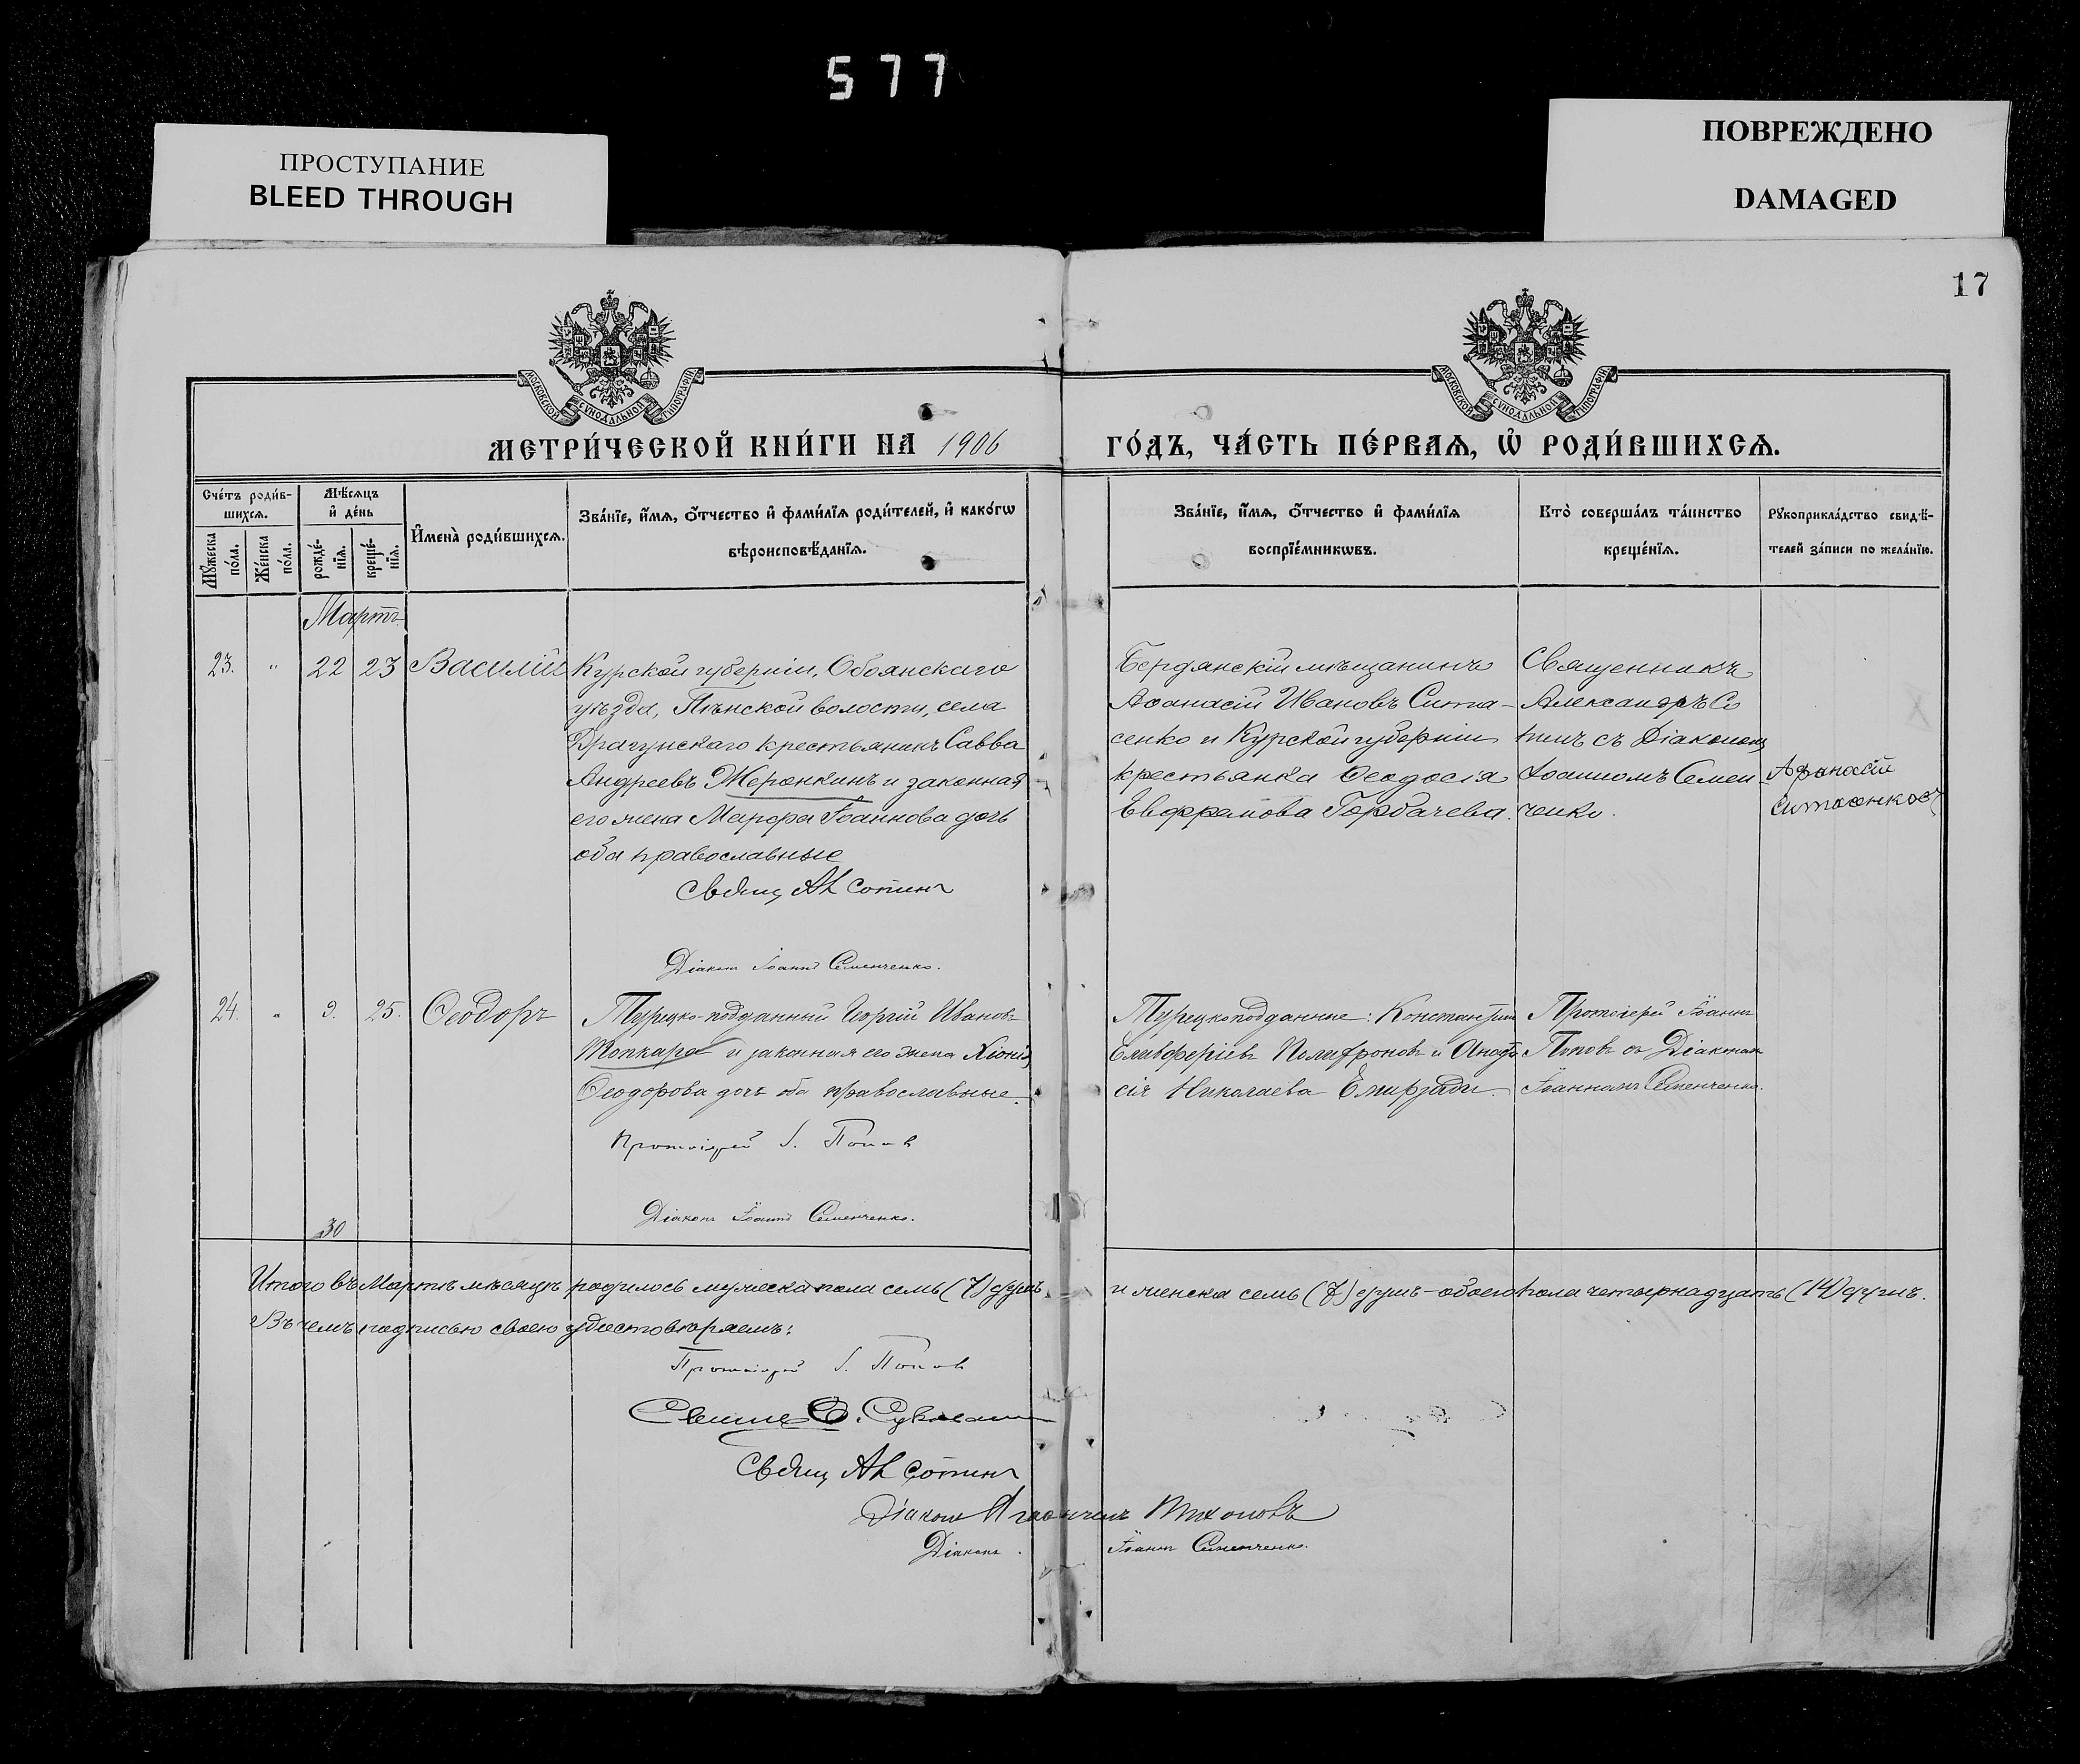 577
ПРОСТУПАНИЕ
BLEED THROUGH
ПОВРЕЖДЕНО
DAMAGED
17
МОСКОВСКОЙ СѴНОДАЛЬНОЙ ТИПОГРАФІИ
МОСКОВСКОЙ СѴНОДАЛЬНОЙ ТИПОГРАФІИ
МЕТРИ́ЧЕСКОЙ КНИ́ГИ НА 1906 ГО́ДЪ, ЧА́СТЬ ПЕ́РВАѦ, Ѡ҆ РОДИ́ВШИХСѦ.
Сче́тъ роди́в-
шихсѧ.
Мꙋ́жеска по́ла.
Же́нска по́ла.
Мѣ́сѧцъ
и҆ де́нь
рожде́-
нїѧ.
креще́-
нїѧ.
И҆мена̀ роди́вшихсѧ.
Зва́нїе, и҆́мѧ, ѻ҆́тчество и҆ фами́лїѧ роди́телей, и҆ како́гѡ
вѣроисповѣ́данїѧ.
Зва́нїе, и҆́мѧ, ѻ҆́тчество и҆ фами́лїѧ
воспрїе́мникѡвъ.
Кто̀ соверша́лъ та́инство
креще́нїѧ.
Рꙋкоприкла́дство свидѣ́-
телей за́писи по жела́нїю.
Мартъ
23. " 22 23 Василій
Курской губерніи, Обоянскаго
уѣзда, Пѣнской волости, села
Драгунскаго крестьянинъ Савва
Андреевъ Жеронкинъ и законная
его жена Марфа Іоаннова дочь
оба православные
Свящ Ал Сотинъ
Діаконъ Іоаннъ Семенченко.
Бердянскій мѣщанинъ
Аѳанасій Ивановъ Сита-
сенко и Курской губерніи
крестьянка Ѳеодосія
Евфремова Горбачева.
Священникъ
Александръ Со
тинъ съ Діакономъ
Іоанномъ Семен-
ченко.
Афанасій
Ситасенковъ
24. " 9. 25. Ѳеодоръ
Турецко-подданный Георгій Ивановъ
Топкара и законная его жена Хіонія
Ѳеодорова дочь оба православные.
Протоіерей І. Поповъ
Діаконъ Іоаннъ Семенченко.
Турецкоподданные: Константинъ
Елевферіевъ Полифроновъ и Анаста
сія Николаева Емирзади.
Протоіерей Іоаннъ
Поповъ съ Діакономъ
Іоанномъ Семенченко.
30
Итого въ Мартѣ мѣсяцѣ родилось мужеска пола семь (7) душъ и женска семь (7) душъ – обоего пола четырнадцать (14) душъ.
Въ чемъ подписью своею удостовѣряемъ:
Протоіерей І. Поповъ
Свящ Ал Сотинъ
Діаконъ Тихоновъ
Діаконъ Іоаннъ Семенченко.